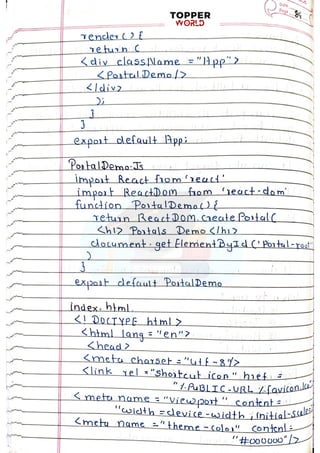 TOPPER
WORLD
render() {
return (
<div className = "App">
<PortalDemo/>
</div>
);
}
}
export default App;
PortalDemo.Js
import React from 'react'
import ReactDOM from 'react-dom'
function PortalDemo() {
return ReactDOM.createPortal(
<h1> Portals Demo </h1>
document.getElementById('Portal-root
)
}
export default PortalDemo
Index.html
<! DOCTYPE html>
<html lang = "en">
<head>
<meta charset = "utf-8"/>
<link rel = "shortcut icon" href =
"%PUBLIC-URL%favicon.ico"
<meta name = "viewport" content =
"width=device-width, initial-scale=
<meta name = "theme-color" content=
"#000000"/>